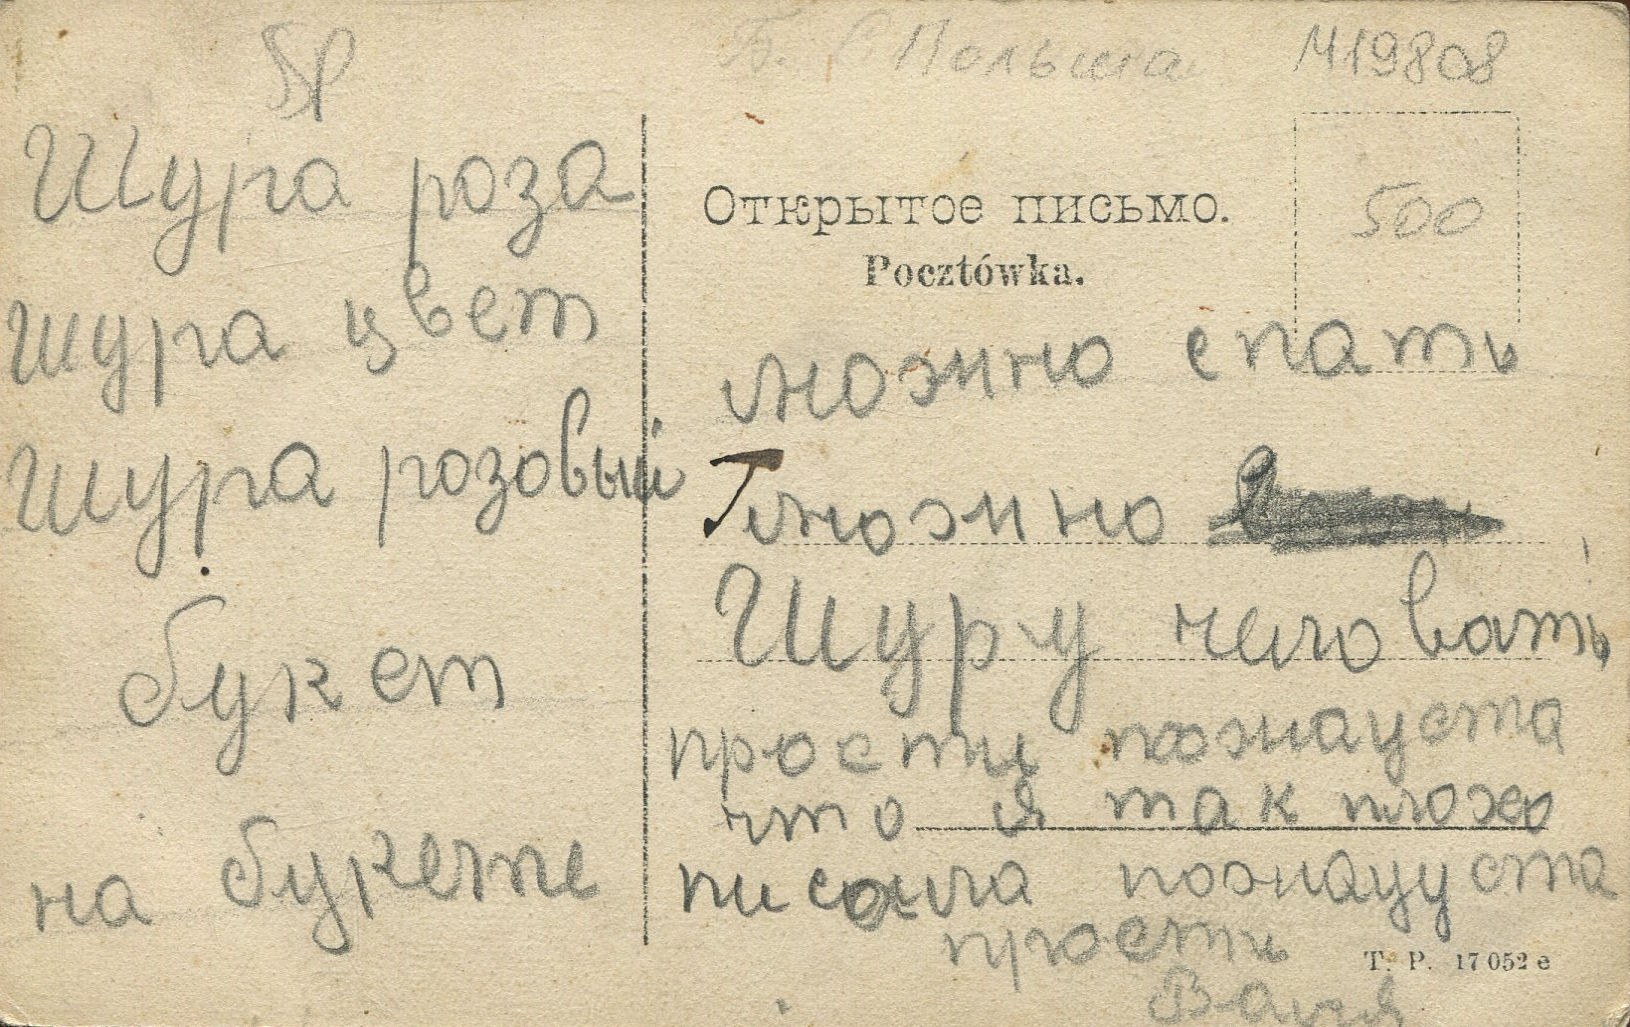 бр
Польша
М19808
Шура роза
шура цвет
шура розовый
букет
на букете
Открытое письмо.
Pocztówka.
500
можно спать
можно
Шуру чаловать
прости пожнауста
что я так плохо
писала пожнауста
прость
Валя
T. P. 17052 e